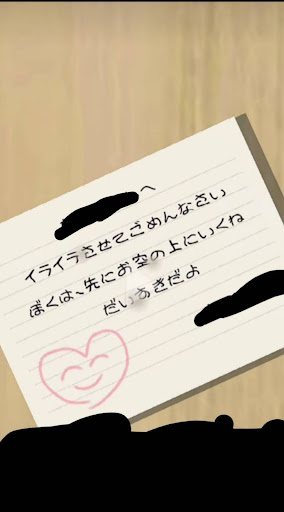 へ
イライラさせてごめんなさい
ぼくは、先にお空の上にいくね
だいすきだよ